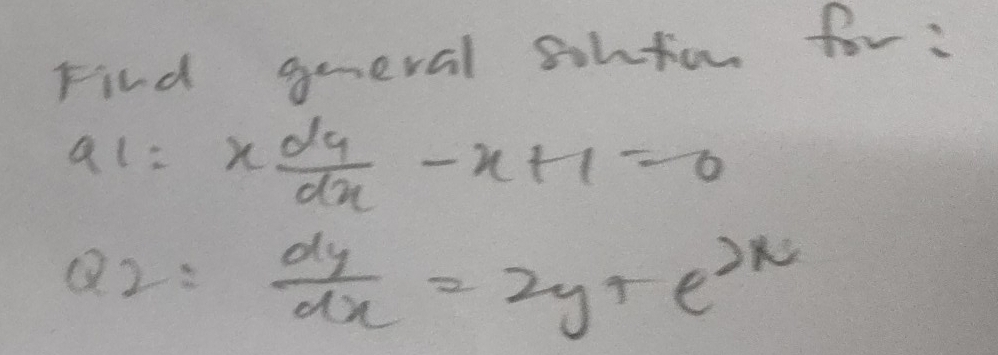 Find general solution for:
Q1: x dy/dx - x + 1 = 0
Q2: dy/dx = 2y + e^2x